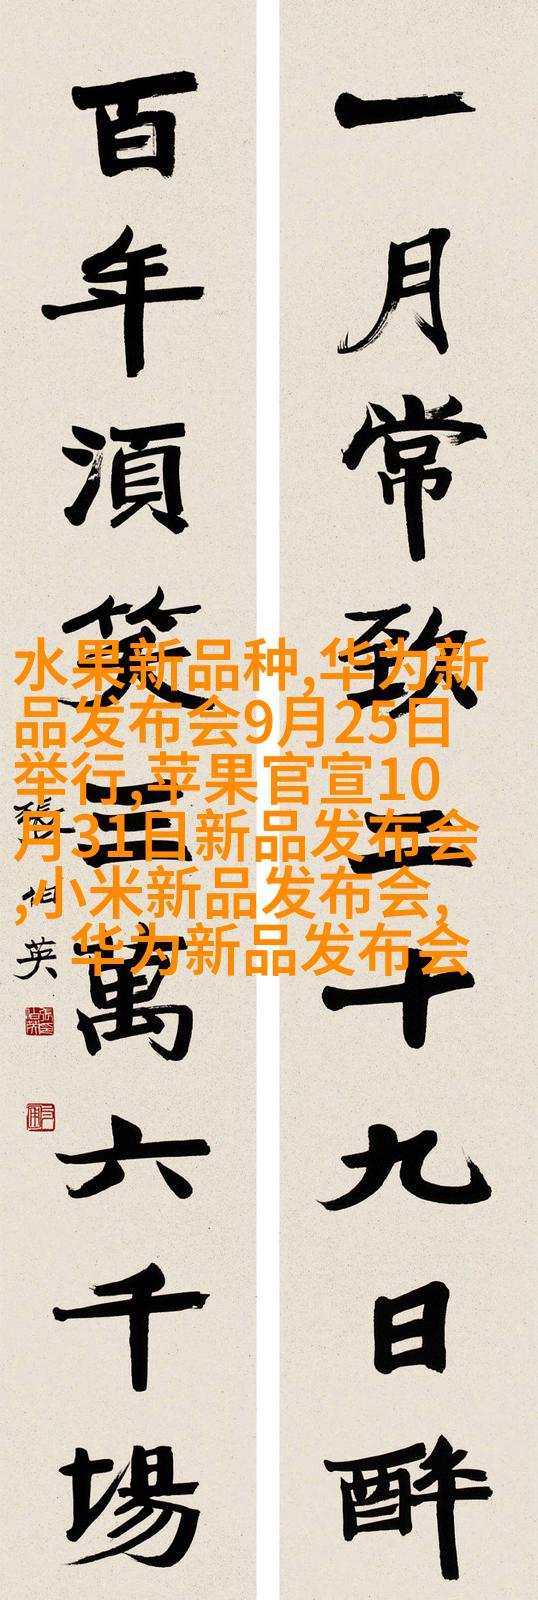 一月常致二十九日酔
百年湏笑三萬六千場
張伯英
水果新品种,华为新
品发布会9月25日
举行,苹果官宣10
月31日新品发布会
,小米新品发布会,
华为新品发布会